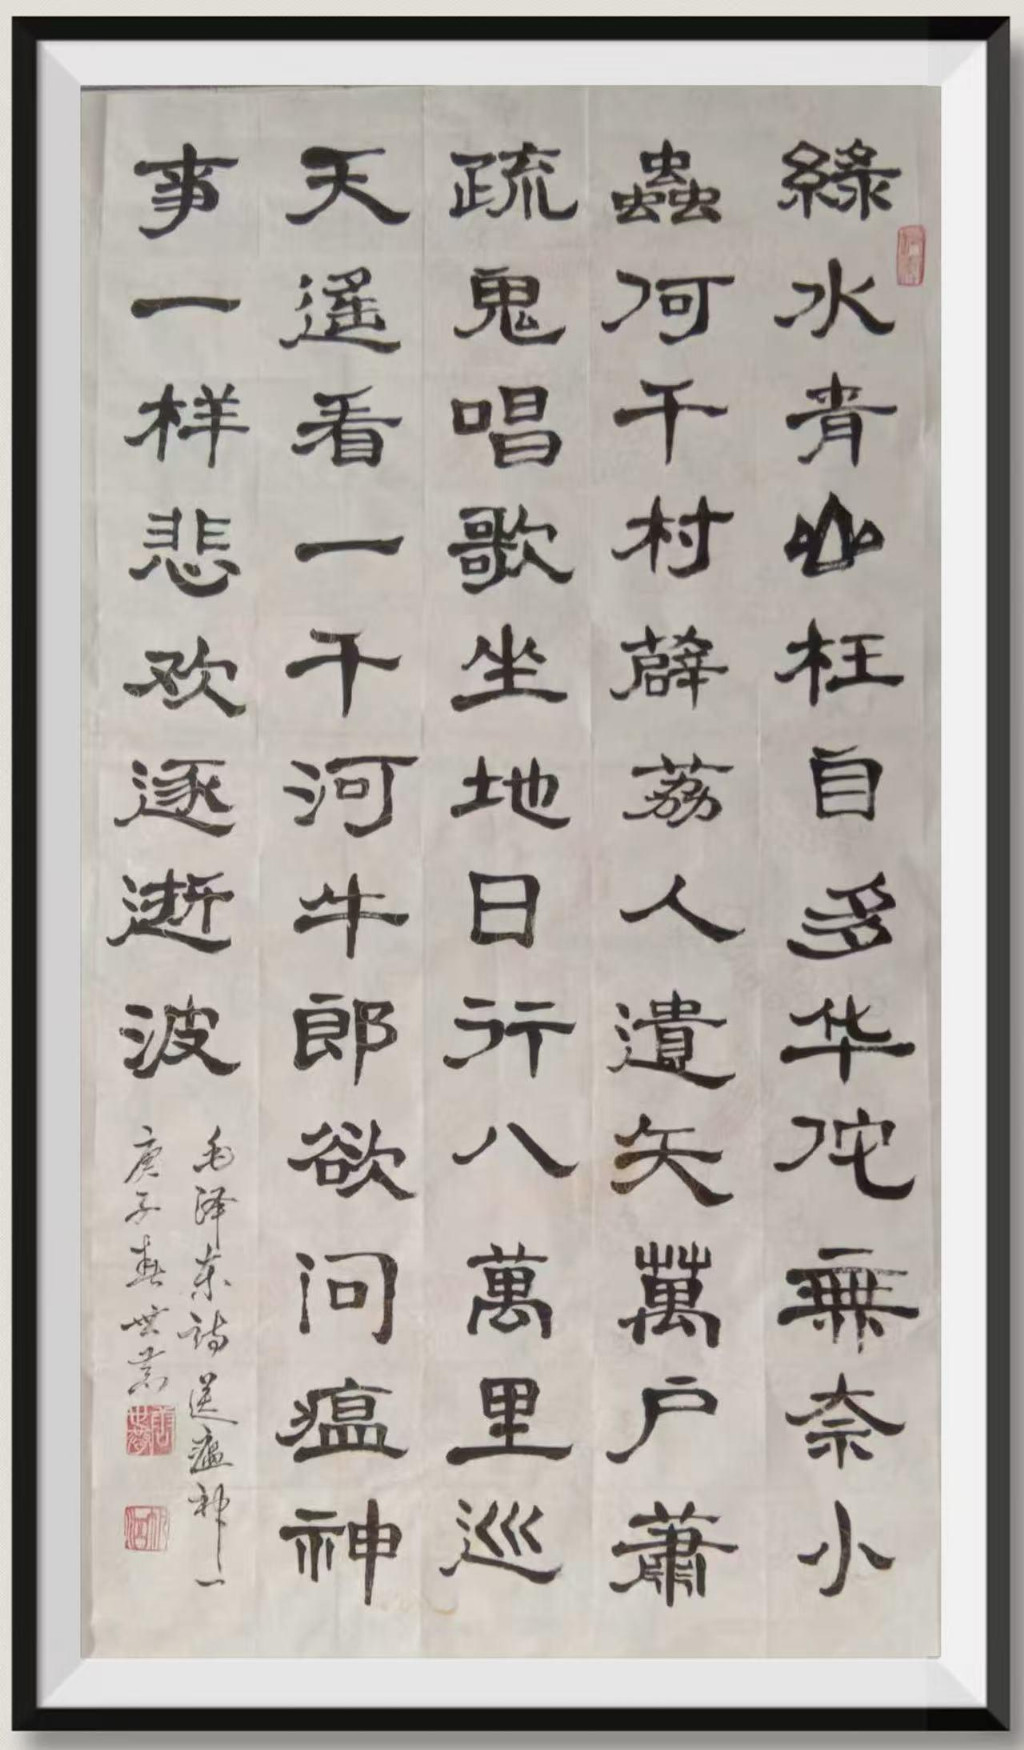 綠水青山枉自多华佗無奈小
蟲何千村薜荔人遺矢萬户蕭
疏鬼唱歌坐地日行八萬里巡
天遥看一千河牛郎欲问瘟神
事一样悲欢逐逝波
毛泽东诗送瘟神一
庚子春世